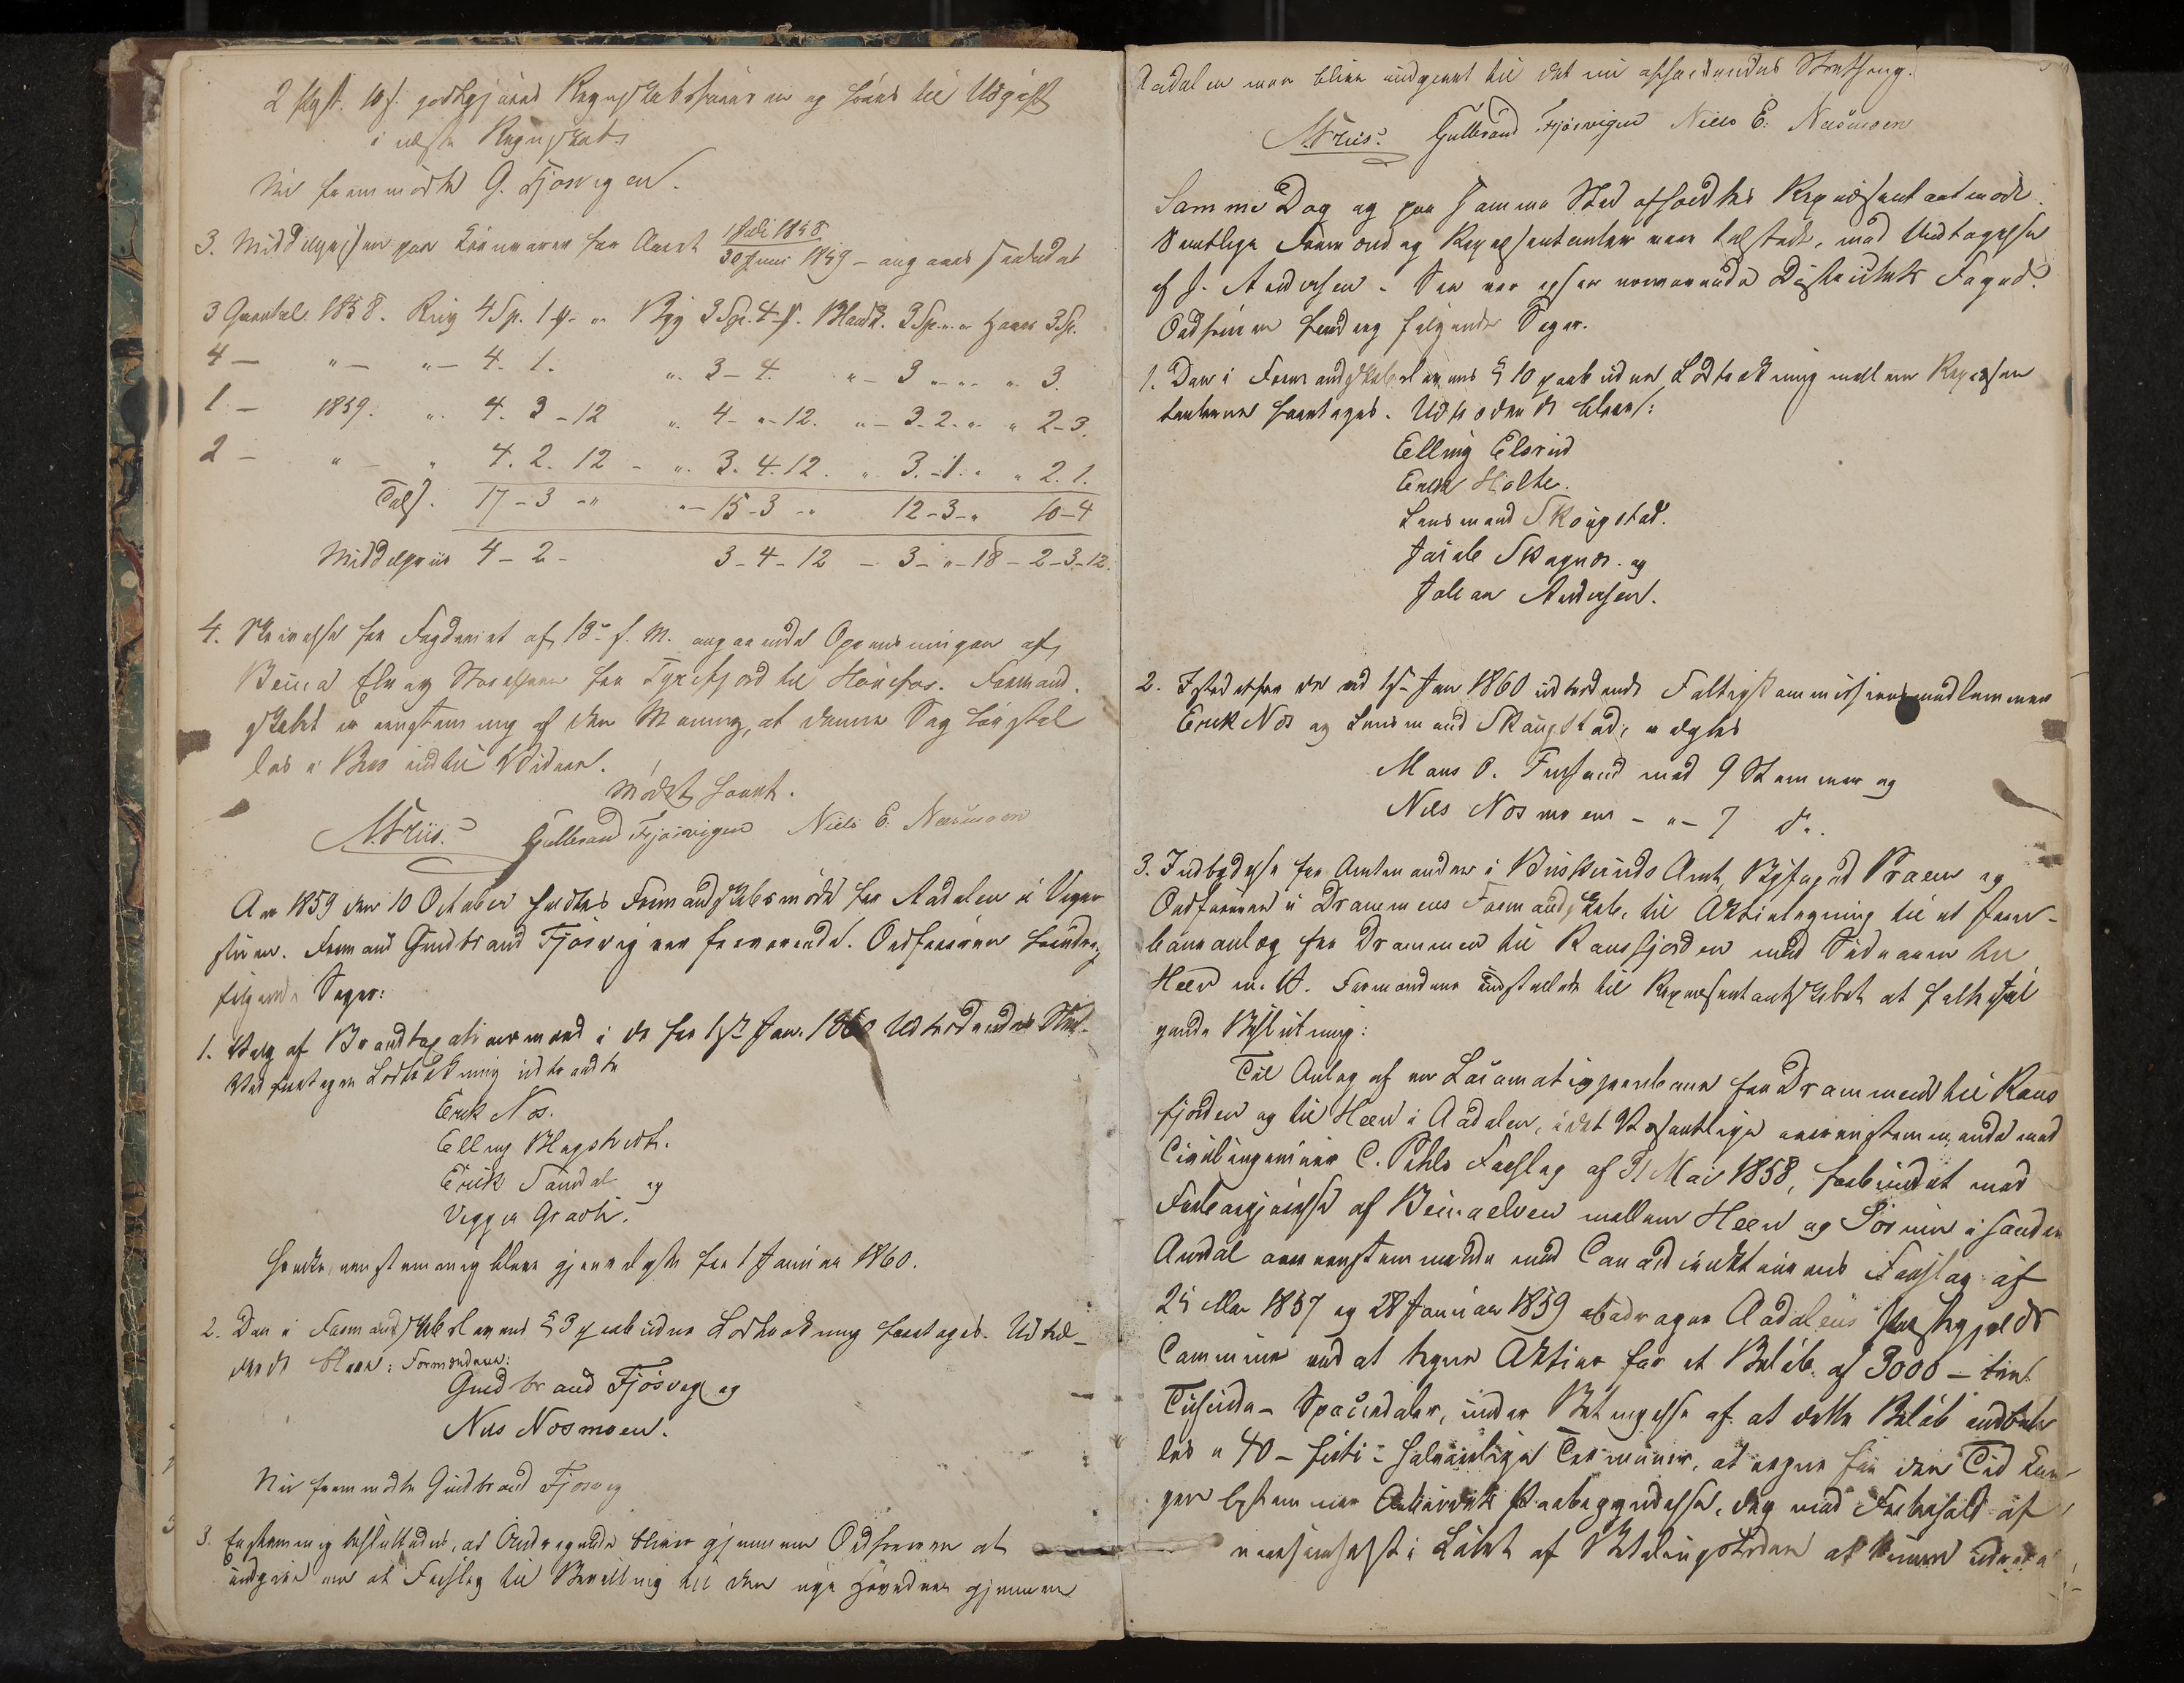 2 Skpt. 10 s. godtgjøres Regnskabsføreren og føres til Udgift
i næste Regnskab.
Nu fremmødte G. Fjøsvigen.
3. Middelprisen paa Kornvarer for Aaret 1 Juli 1858
30 Juni 1859 – angaves saaledes at
3 Quartal 1858. Rug 4 Sp. 1 ₰. " Byg 3 Sp. 4 ₰. Blandk. 3 Sp. " " Havre 3 Sp.
4 — " — " — 4. 1. " 3 – 4. " – 3 " – " " 3.
1 – 1859. " 4. 3 – 12 " 4 – " – 12. " – 3 – 2. " " 2 – 3.
2 – " – " 4. 2. 12 – " 3. 4. 12. " 3. – 1. " " 2. 1.
Tils. 17 – 3 – " " – 15 – 3 – " 12 – 3 – " 10 – 4
Middelpriis 4 – 2 – 3 – 4 – 12 – 3 – " – 18 – 2 – 3 – 12.
4. Skrivelse fra Fogderiet af 13de f. M. angaaende Oprensningen af
Beina Elv og Storelven fra Tyrifjord til Hønefos. Formand-
skabet er eenstemmig af den Mening, at denne Sag
i Bero indtil Videre.
Mødet hævet.
M. Friis. Gulbrand Fjøsvigen Niels E. Næsmoen
Aar 1859 den 10 October holdtes Formandskabsmøde for Aadalen i Viger-
stuen. Formand Gudbrand Fjøsvig var fraværende. Ordføreren foredrog
følgende Sager:
1. Valg af Brandtaxationsmænd i de fra 1ste Jan. 1860 Udtrædendes Sted.
Ved foretagen Lodtrækning udtraadte
Erik Næs.
Elling Blagstvedt.
Erik Sandal og
Vegger Gravli.
Hvilke eenstemmig bleve gjenvalgte fra 1 Januar 1860.
2. Den i Formandskabslovens § 3 paabudne Lodtrækning foretoges. Udtræ-
dende bleve: Formændene:
Gudbrand Fjøsvig og
Nils Næsmoen.
Nu fremmødte Gudbrand Fjøsvig
3. Enstemmig besluttedes, at Andragende bliver gjennem Ordføreren at
indgive om at Forslag til Bevilling til den nye Hovedvei gjennem
Aadalen maa blive indgivet til det nu afholdendes Storthing.
M. Friis. Gulbrand Fjøsvigen Niels E. Næsmoen
Samme Dag og paa samme Sted afholdtes Repræsentantmøde.
Samtlige Formænd og Repræsentanter vare tilstede, med Undtagelse
af J. Andersen. Der var ogsaa nærværende Distriktets Foged.
Ordføreren foredrog følgende Sager.
1. Den i Formandskabslovens § 10 paabudne Lodtrækning mellem Repræsen
tanterne foretoges. Udtrædende bleve:
Elling Elsrud
Erik Holte.
Lensmand Skougstad.
Jacob Skagnæs. og
Johan Andersen.
2. Istedetfor de ved 1ste Jan 1860 udtrædende Fattigkommissionsmedlemmer
Erik Næs og Lensmand Skaugstad, valgtes
Mons O. Fursund med 9 Stemmer og
Nils Næsmoen – " – 7 do.
3. Indbydelse fra Amtmanden i Buskeruds Amt, Byfoged Praem og
Ordføreren i Drammens Formandskab, til Aktietegning til et Jern-
baneanlæg fra Drammen til Randsfjorden med Sidearm til
Heen m. M. Formændene indstillede til Repræsentantskabet at fatte føl
gende Beslutning:
Til Anlæg af en Locomotivjernbane fra Drammen til Rans
fjorden og til Heen i Aadalen, i det Væsentlige overensstemmende med
Civilingeniør C. Pihls Forslag af 31 Mai 1858, forbundet med
Farbargjørelse af Beinaelven mellem Heen og Sørum i søndre
Aurdal overensstemmende med Canaldirekteurens Forslag af
25 Mar 1857 og 28 Januar 1859 bidrager Aadalens Præstegjelds
Commune ved at tegne Aktier for et Beløb af 3000 – tre
Tusinde – Speciedaler, under Betingelse af at dette Beløb indbeta
les i 40 – firti – halvaarlige Terminer, at regne fra den Tid Kon-
gen bestemmer Arbeidets Paabegyndelse, dog med Forbehold af
i Løbet af Betalingstiden at kunne